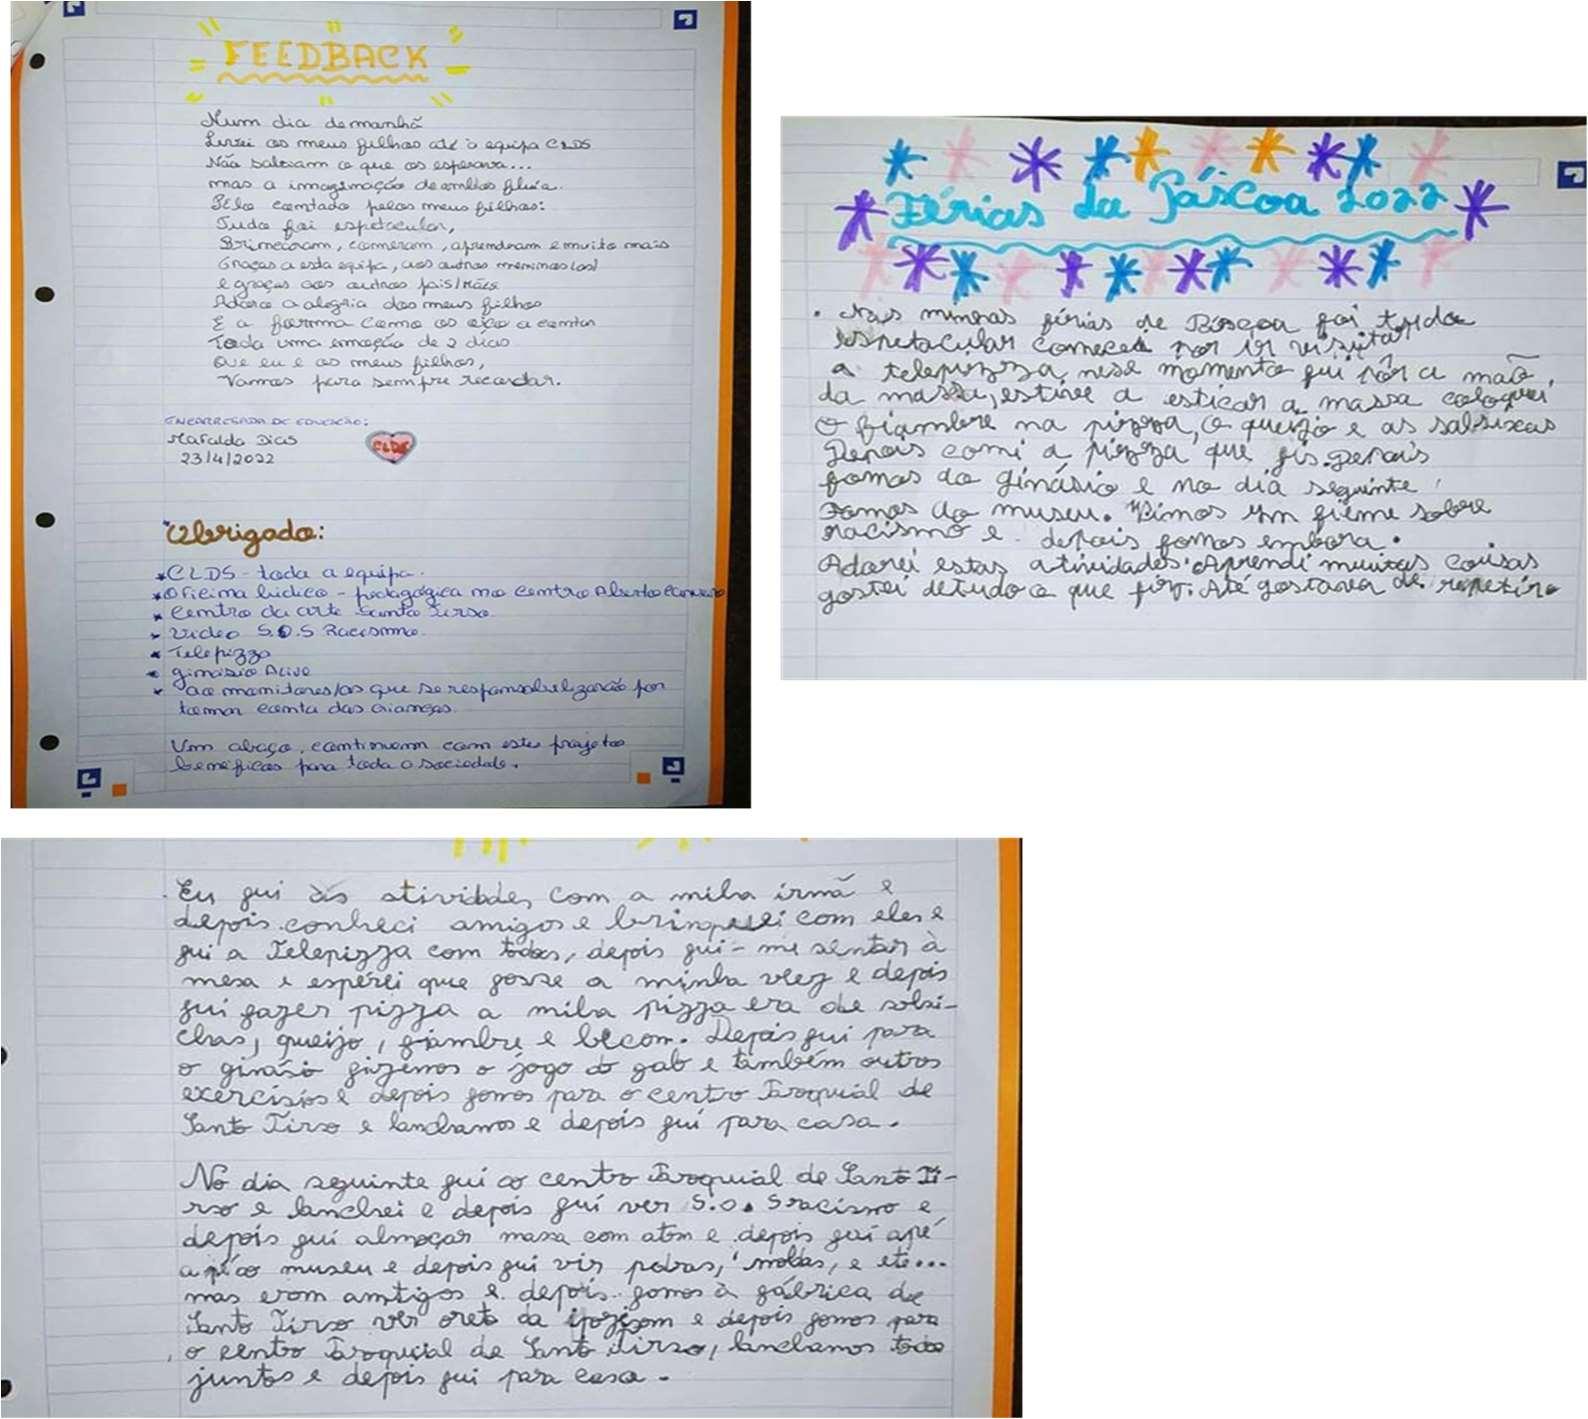 FEEDBACK
Num dia de manhã
Levei os meus filhos até à equipa CLDS
Não sabiam o que os esperava...
mas a imaginação de ambos fluia.
Pelo contado pelos meus filhos:
Tudo foi espetacular,
Brincaram, comeram, aprenderam e muito mais
Graças a esta equipa, aos outros meninos(as)
e graças aos outros pais/mães
Adoro a alegria dos meus filhos
E a forma como os oiço a contar
Toda uma emoção de 2 dias
Que eu e os meus filhos,
Vamos para sempre recordar.
ENCARREGADA DE EDUCAÇÃO:
Mafalda Dias
23/4/2022
CLDS
Obrigado:
*CLDS - toda a equipa.
*Oficina lúdico - pedagógica no Centro Aberto
* Centro da arte Santo Tirso
* video S.O.S Racismo
* Telepizza
* ginásio Alive
* ao monitores/as que se responsabilizarão por
tomar conta das crianças.
Um abaço, continuem com estes projetos
beneficos para toda a sociedade.
Férias da Páscoa 2022
. Nas minhas férias de Páscoa foi tudo
espetacular comecei por ir visitar
a telepizza, nese momento fui pôr a mão
da massa, estive a esticar a massa coloquei
o fiambre na pizza, o queijo e as salsixas
Depois comi a pizza que fis. Depois
fomos ao ginásio e no dia seguinte
Fomos ao museu. Vimos um fieme sobre
racismo e depois fomos embora.
Adorei estas atividades. Aprendi muitas coisas
gostei de tudo o que fiz. Até gostava de repetir
Eu fui às atividades com a milha irmã e
depois conheci amigos e brinquei com eles e
fui a Telepizza com todos, depois fui-me sentar à
mesa e esperei que fosse a minha vez e depois
fui fazer pizza a milha pizza era de salsi-
chas, queijo, fiambre e becom. Depois fui para
o ginásio fizemos o jogo do gato e também outros
exercísios e depois fomos para o centro Paroquial de
Santo Tirso e lanchamos e depois fui para casa.
No dia seguinte fui ao centro Paroquial de Santo Ti-
rso e lanchei e depois fui ver S.O.S racismo e
depois fui almoçar massa com atom e depois fui apé
a pé ao museu e depois fui vir pedras, moedas, e etc...
mas erom amtigos e depois fomos à fábrica de
Santo Tirso ver da e depois fomos para
o centro Paroquial de Santo Tirso, lanchamos todos
juntos e depois fui para casa.